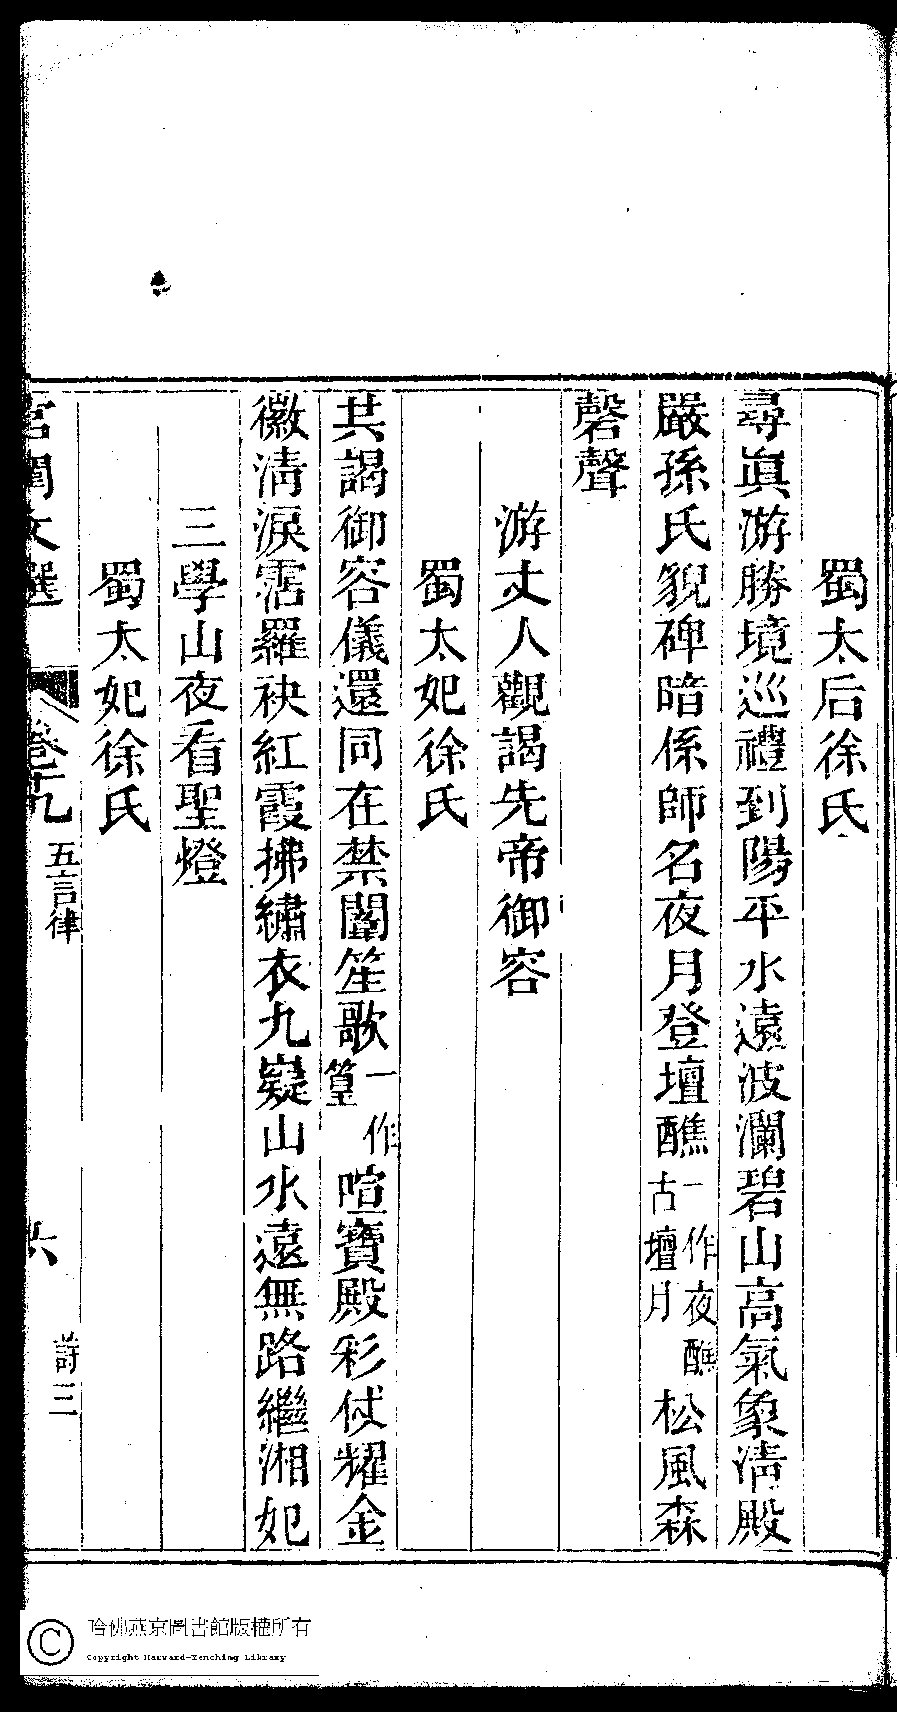 蜀太后徐氏
尋眞游勝境巡禮到陽平水遠波瀾碧山高氣象清殿
嚴孫氏貌碑暗係師名夜月登壇醮一作夜醮古壇月松風森
磬聲
游丈人觀謁先帝御容
蜀太妃徐氏
共謁御容儀還同在禁闈笙歌一作篁喧寶殿彩仗耀金
徽清淚霑羅袂紅霞拂繡衣九嶷山水遠無路繼湘妃
三學山夜看聖燈
蜀太妃徐氏
宮閨文選 卷十九 五言律 六 詩三
哈佛燕京圖書館版權所有
Copyright Harvard-Yenching Library